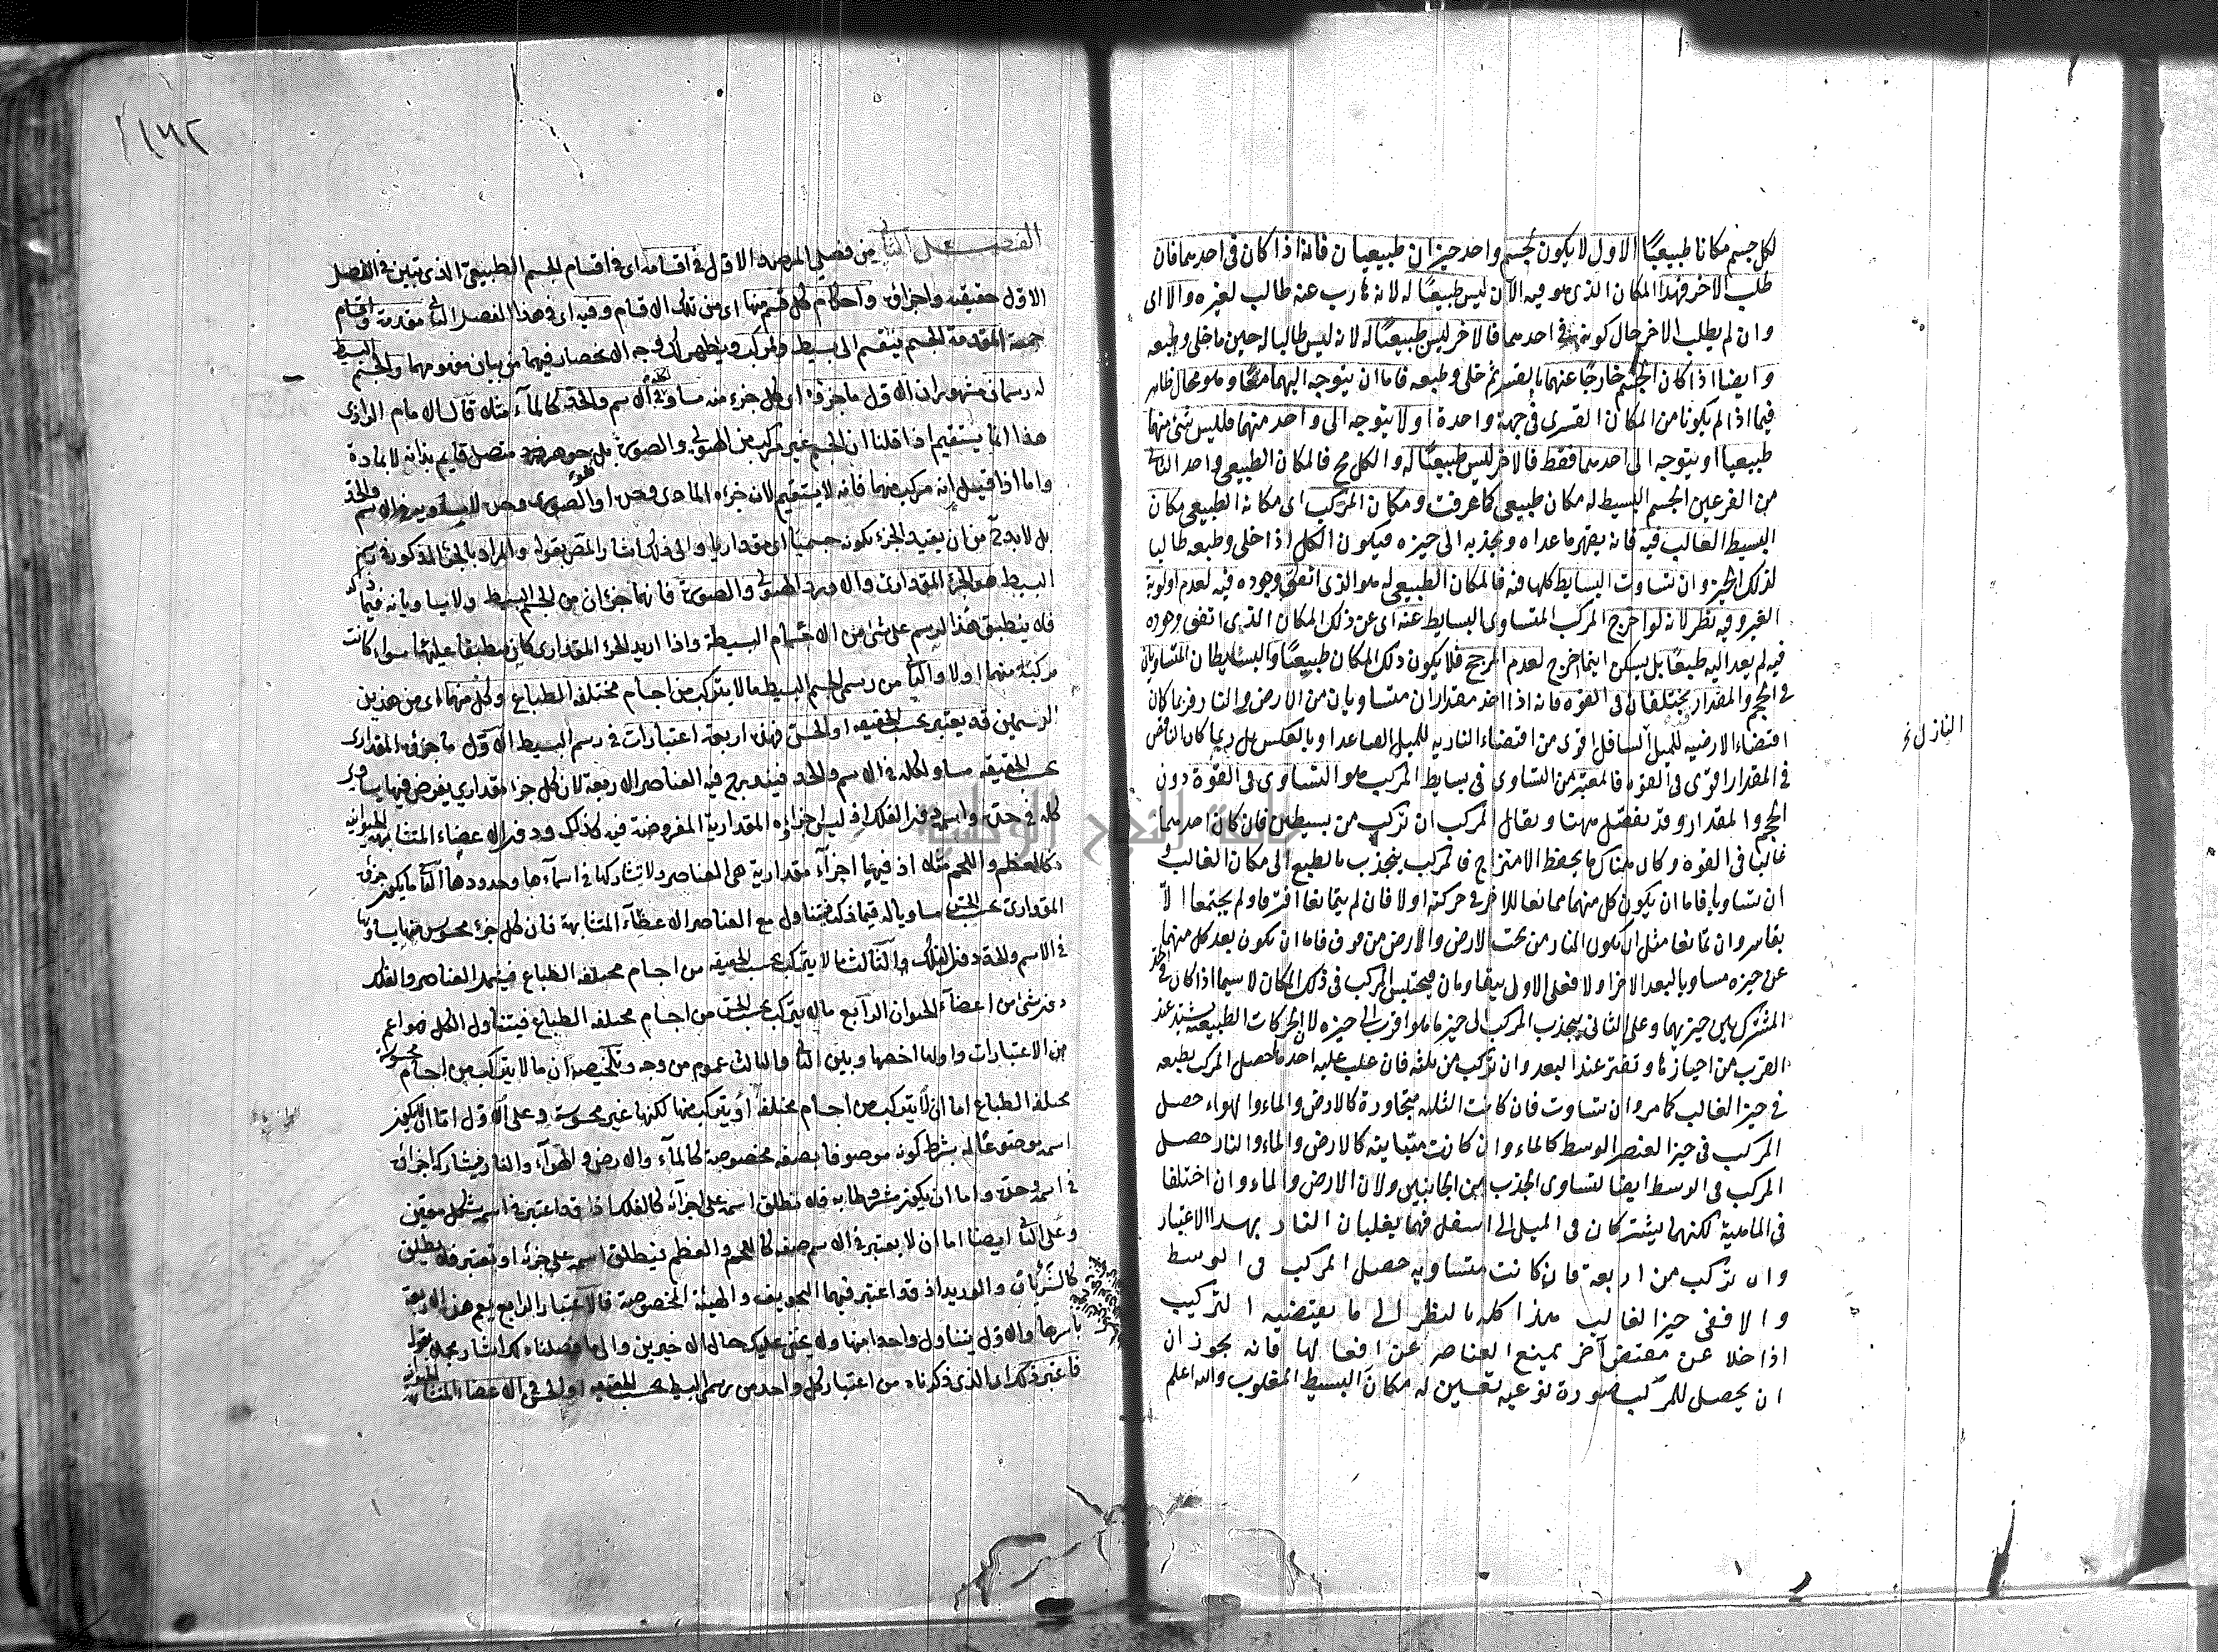 لكل جسم مكانا طبيعيا الاول لا يكون لجسم واحد حيزان طبيعيان فانه اذا كان فى احدهما فان
طلب الاخر فهذا المكان الذى هو فيه الآن ليس طبيعيا له لانه هارب عنه طالب لغيره والا اى
وان لم يطلب الاخر حال كونه فى احدهما فالاخر ليس طبيعيا له لانه ليس طالبا له حين ما خلى وطبعه
وايضا اذا كان الجسم خارجا عنهما بالقسر ثم خلى وطبعه فاما ان يتوجه اليهما معا وهو محال ظاهر
فيما اذا لم يكونا من المكان القسرى فى جهة واحدة او لا يتوجه الى واحد منهما فليس شئ منهما
طبيعيا او يتوجه الى احدهما فقط فالاخر ليس طبيعيا له والكل مح فالمكان الطبيعى واحد الثانى
من الفرعين الجسم البسيط له مكان طبيعى كما عرفت ومكان المركب اى مكانه الطبيعى مكان
البسيط الغالب فيه فانه يقهر ما عداه ويجذبه الى حيزه فيكون الكل اذا خلى وطبعه طالبا
لذلك الحيز وان تساوت البسايط كلها فيه فالمكان الطبيعى له هو الذى اتفق وجوده فيه لعدم اولوية
الغير وفيه نظر لانه لو اخرج المركب المتساوى البسايط عنه اى عن ذلك المكان الذى اتفق وجوده
فيه لم يعد اليه طبعا بل يسكن اينما اخرج لعدم المرجح فلا يكون ذلك المكان طبيعيا والبسيطان المتساويان
فى الحجم والمقدار يختلفان فى القوة فانه اذا اخذ مقداران متساويان من الارض والنار فربما كان
اقتضاء الارضيه للميل السافل اقوى من اقتضاء الناريه للميل الصاعد او بالعكس بل ربما كان الناقص
فى المقدار اقوى فى القوة فالمعتبر من التساوى فى بسايط المركب هو التساوى فى القوة دون
الحجم والمقدار وقد يفصل ههنا ويقال المركب ان تركب من بسيطين فان كان احدهما
غالبا فى القوة وكان هناك ما يحفظ الامتزاج فالمركب ينجذب بالطبع الى مكان الغالب
ان تساويا فاما ان يكون كل منهما ممانعا للاخر فى حركته اولا فان لم يتمانعا افترقا ولم يجتمعا الا
بقاسر وان تمانعا مثل ان يكون النار من تحت الارض والارض من فوق فاما ان يكون بعد كل منهما
عن حيزه مساويا لبعد الاخر اولا فعلى الاول يتقاومان فيحتبس المركب فى ذلك المكان لاسيما اذا كان فى الحد
المشترك بين حيزيهما وعلى الثانى ينجذب المركب الى حيز ما هو اقرب الى حيزه لان الحركات الطبيعية يشتد عند
القرب من احيازها وتفتر عند البعد وان تركب من ثلثه فان غلب عليه احدها حصل المركب بطبعه
فى حيز الغالب كما مر وان تساوت فان كانت الثلثه متجاورة كالارض والماء والهواء حصل
المركب فى حيز العنصر الوسط كالماء وان كانت متباينه كالارض والماء والنار حصل
المركب فى الوسط ايضا لتساوى الجذب من الجانبين ولان الارض والماء وان اختلفا
فى الماهية لكنهما يشتركان فى الميل الى اسفل فهما يغلبان النار بهذا الاعتبار
وان تركب من اربعة فان كانت متساويه حصل المركب فى الوسط
والا ففى حيز الغالب هذا كله بالنظر الى ما يقتضيه التركيب
اذا خلا عن مقتض آخر يمنع العناصر عن افعالها فانه يجوز ان
ان يحصل للمركب صورة نوعيه تعين له مكان البسيط المغلوب والله اعلم
الفصل الثانى من فصلى المرصد الاول فى اقسامه اى فى اقسام الجسم الطبيعى الذى تبين فى الفصل
الاول حقيقته واجزاؤه واحكام كل قسم منها اى من تلك الاقسام وفيه اى فى هذا الفصل الثانى مقدمة واقسام
خمسة المقدمة الجسم ينقسم الى بسيط ومركب ويظهر لك وجه الانحصار فيهما من بيان مفهومهما والجسم البسيط
له رسمان مشهوران الاول ما جزؤه اى كل جزء منه مساو لكله فى الاسم والحد كالماء مثلا قال الامام الرازى
هذا انما يستقيم اذا قلنا ان الجسم غير مركب من الهيولى والصورة بل جوهر فرد متصل قايم بذاته لا بمادة
واما اذا قيل انه مركب منهما فانه لا يستقيم لان جزءه المادى وحده او الصورى وحده لا يساويه فى الاسم والحد
بل لا بد من ان يقيد الجزء بكونه جسميا اى مقداريا والى ذلك اشار المص بقوله والمراد بالجزء المذكور فى رسم
البسيط هو الجزء المقدارى والا ورد الهيولى والصورة فانهما جزءان من الجسم البسيط ولا يساويانه فيما ذكر
فلا ينطبق هذا الرسم على شئ من الاجسام البسيطة واذا اريد الجزء المقدارى كان منطبقا عليها سواء كانت
مركبة منهما اولا والثانى من رسمى الجسم البسيط ما لا يتركب من اجسام مختلفة الطبايع وكل منهما اى من هذين
الرسمين قد يعتبر بحسب الحقيقه او الحس فهذه اربعة اعتبارات فى رسم البسيط الاول ما جزؤه المقدارى
بحسب الحقيقة مساو لكله فى الاسم والحد فيندرج فيه العناصر الاربعة لان كل جزء مقدارى يفرض فيها يساوى
كله فى حده واسمه دون الفلك اذ ليس اجزاؤه المقدارية المفروضة فيه كذلك ودون الاعضاء المتشابهة الحيوانيه
كالعظم واللحم مثلا اذ فيها اجزاء مقدارية هى العناصر ولا تشاركها فى اسماءها وحدودها الثانى ما يكون جزؤه
المقدارى بحسب الحس مساويا له فيما ذكر فيتناول مع العناصر الاعضاء المتشابهة فان كل جزء محسوس منها يساويها
فى الاسم والحد دون الفلك والثالث ما لا يتركب بحسب الحقيقه من اجسام مختلفة الطبايع فيشمل العناصر والفلك
دون شئ من اعضاء الحيوان الرابع ما لا يتركب بحسب الحس من اجسام مختلفة الطبايع فيتناول الكل فهو اعم
من الاعتبارات واولها اخصها وبين الثانى والثالث عموم من وجه وتلخيصه ان ما لا يتركب من اجسام محسوسة
مختلفة الطبايع اما ان لا يتركب من اجسام مختلفة او يتركب منها لكنها غير محسوسة وعلى الاول اما ان يكون
اسمه موضوعا له بشرط كونه موصوفا بصفه مخصوصة كالماء والارض والهواء والنار فيشاركه اجزاؤه
فى اسمه وحده واما ان يكون مشروطا به فلا نطلق اسمه على اجزائه كالفلك اذا قد اعتبر فى اسمه شكل معين
وعلى الثانى ايضا اما ان لا يعتبر فى الاسم صفه كاللحم والعظم فينطلق اسمه على جزئه او تعتبر فلا يطلق
كالشريان والوريد اذ قد اعتبر فيهما التجويف والهيئة المخصوصة فالاعتبار الرابع يعم هذه الاربعة
باسرها والاول يتناول واحدا منها ولا يخفى عليك حال الاخيرين والى ما فصلناه لك اشار بقوله
فاعتبر ذلك اى الذى ذكرناه من اعتبار كل واحد من رسمى البسيط بحسب الحقيقه او الحس فى الاعضاء المتشابهة الحيوانيه